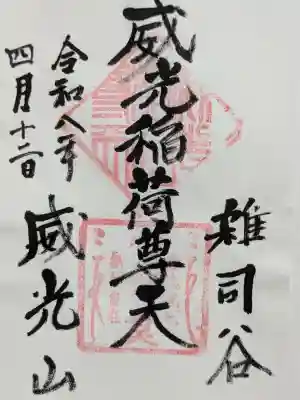 雑司谷
威光稲荷尊天
令和八年
四月十二日
威光山